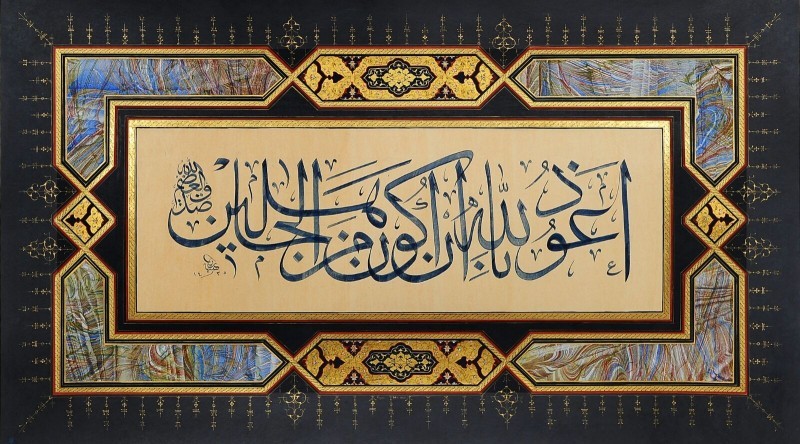 اَعُوذُ بِاللهِ اَنْ اَكُونَ مِنَ الْجَاهِلِينَ
صدق الله العظيم